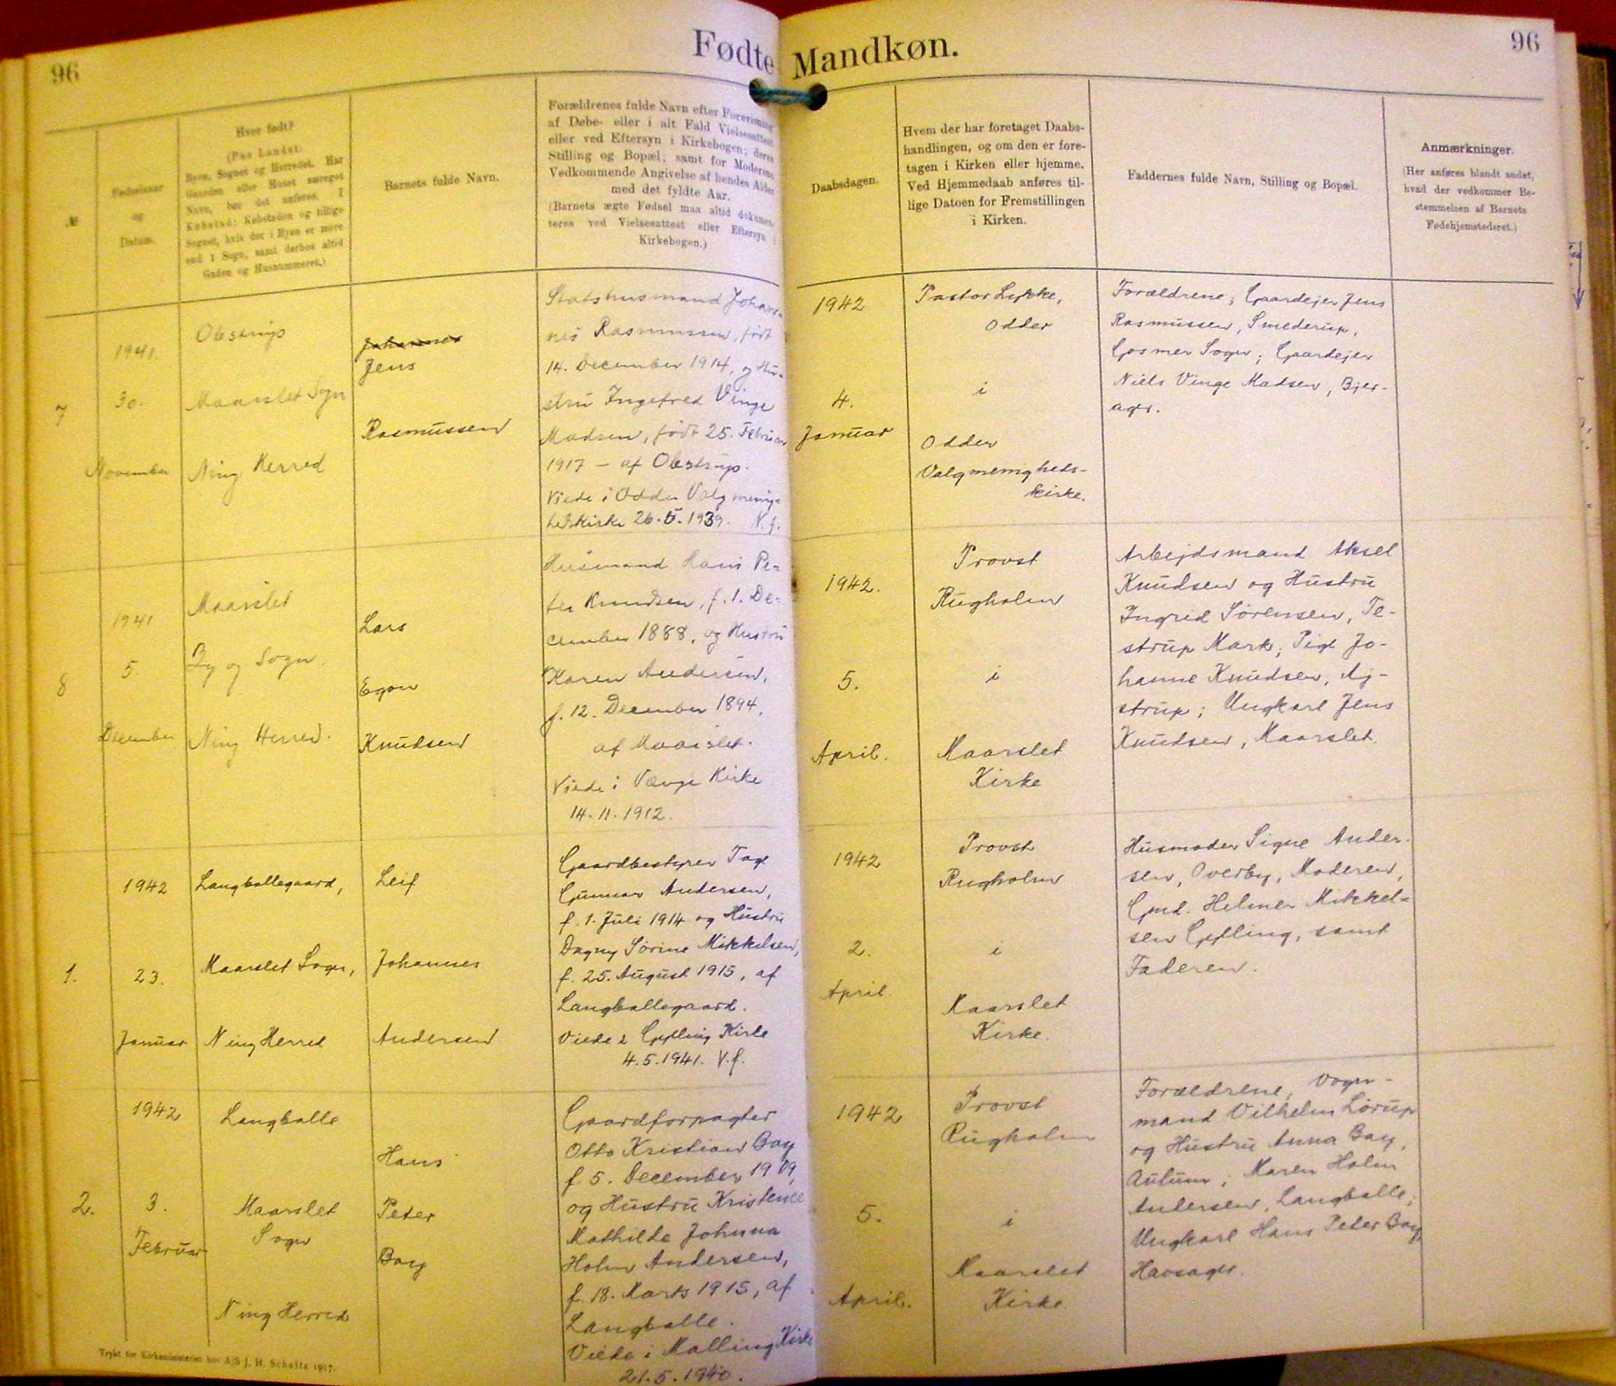 96
Fødte
Mandkøn.
96
№
Fødselsaar
og
Datum.
Hvor født?
(Paa Landet:
Byen, Sognet og Herredet. Har
Gaarden eller Huset særeget
Navn, bør det anføres. I
Købstad: Købstaden og tillige
Sognet, hvis der i Byen er mere
end 1 Sogn, samt derhos altid
Gaden og Husnummeret.)
Barnets fulde Navn.
Forældrenes fulde Navn efter Forevisning
af Døbe- eller i alt Fald Vielsesattest
eller ved Eftersyn i Kirkebogen; deres
Stilling og Bopæl; samt for Moderens
Vedkommende Angivelse af hendes Alder
med det fyldte Aar.
(Barnets ægte Fødsel maa altid dokumen-
teres ved Vielsesattest eller Eftersyn i
Kirkebogen.)
Daabsdagen.
Hvem der har foretaget Daabs-
handlingen, og om den er fore-
tagen i Kirken eller hjemme.
Ved Hjemmedaab anføres til-
lige Datoen for Fremstillingen
i Kirken.
Faddernes fulde Navn, Stilling og Bopæl.
Anmærkninger.
(Her anføres blandt andet,
hvad der vedkommer Be-
stemmelsen af Barnets
Fødehjemstedsret.)
7
1941.
30.
November
Obstrup
Maarslet Sogn
Ning Herred
Johannes
Jens
Rasmussen
Statshusmand Johan-
nes Rasmussen, født
14. December 1914, og Hu-
stru Ingefred Vinge
Madsen, født 25. Februar
1917 - af Obstrup.
Viede i Odder Valgmenig-
hedskirke 26.5.1939.
1942
4.
Januar
Pastor Lykke,
Odder
i
Odder
Valgmenigheds-
kirke.
Forældrene; Gaardejer Jens
Rasmussen, Smederup,
Gosmer Sogn; Gaardejer
Niels Vinge Madsen, Bjer-
ager.
8
1941
5.
December
Maarslet
By og Sogn.
Ning Herred.
Lars
Egon
Knudsen
Husmand Hans Pe-
ter Knudsen, f. 1. De-
cember 1888, og Hustru
Karen Andersen,
f. 12. December 1894,
af Maarslet.
Viede i Kirke
14.11.1912.
1942.
5.
April.
Provst
Rugholm
i
Maarslet
Kirke
Arbejdsmand Aksel
Knudsen og Hustru
Ingrid Sørensen, Te-
strup Mark; Pige Jo-
hanne Knudsen, Aj-
strup; Ungkarl Jens
Knudsen, Maarslet.
1.
1942
23.
Januar
Langballegaard,
Maarslet Sogn,
Ning Herred
Leif
Johannes
Andersen
Gaardbestyrer Tage
Gunnar Andersen,
f. 1. Juli 1914 og Hustru
Dagny Sørine Mikkelsen,
f. 25. August 1915, af
Langballegaard.
Viede i Gylling Kirke
4.5.1941. V.f.
1942
2.
April
Provst
Rugholm
i
Maarslet
Kirke.
Husmoder Signe Ander-
sen, Overby, Moderen,
Gmd. Helmer Mikkel-
sen Gylling, samt
Faderen.
2.
1942
3.
Februar
Langballe
Maarslet
Sogn
Ning Herred
Hans
Peter
Bay
Gaardforpagter
Otto Kristian Bay
f 5. December 1909,
og Hustru Kristence
Mathilde Johnna
Holm Andersen,
f. 18. Marts 1915, af
Langballe.
Viede i Malling Kirke
21.5.1940.
1942
5.
April.
Provst
Rugholm
i
Maarslet
Kirke
Forældrene, Vogn-
mand Vilhelm Lørup
og Hustru Anna Bay,
Aulum; Maren Holm
Andersen, Langballe;
Ungkarl Hans Peter Bay
Havsager.
Trykt for Kirkeministeriet hos A/S J. H. Schultz 1917.